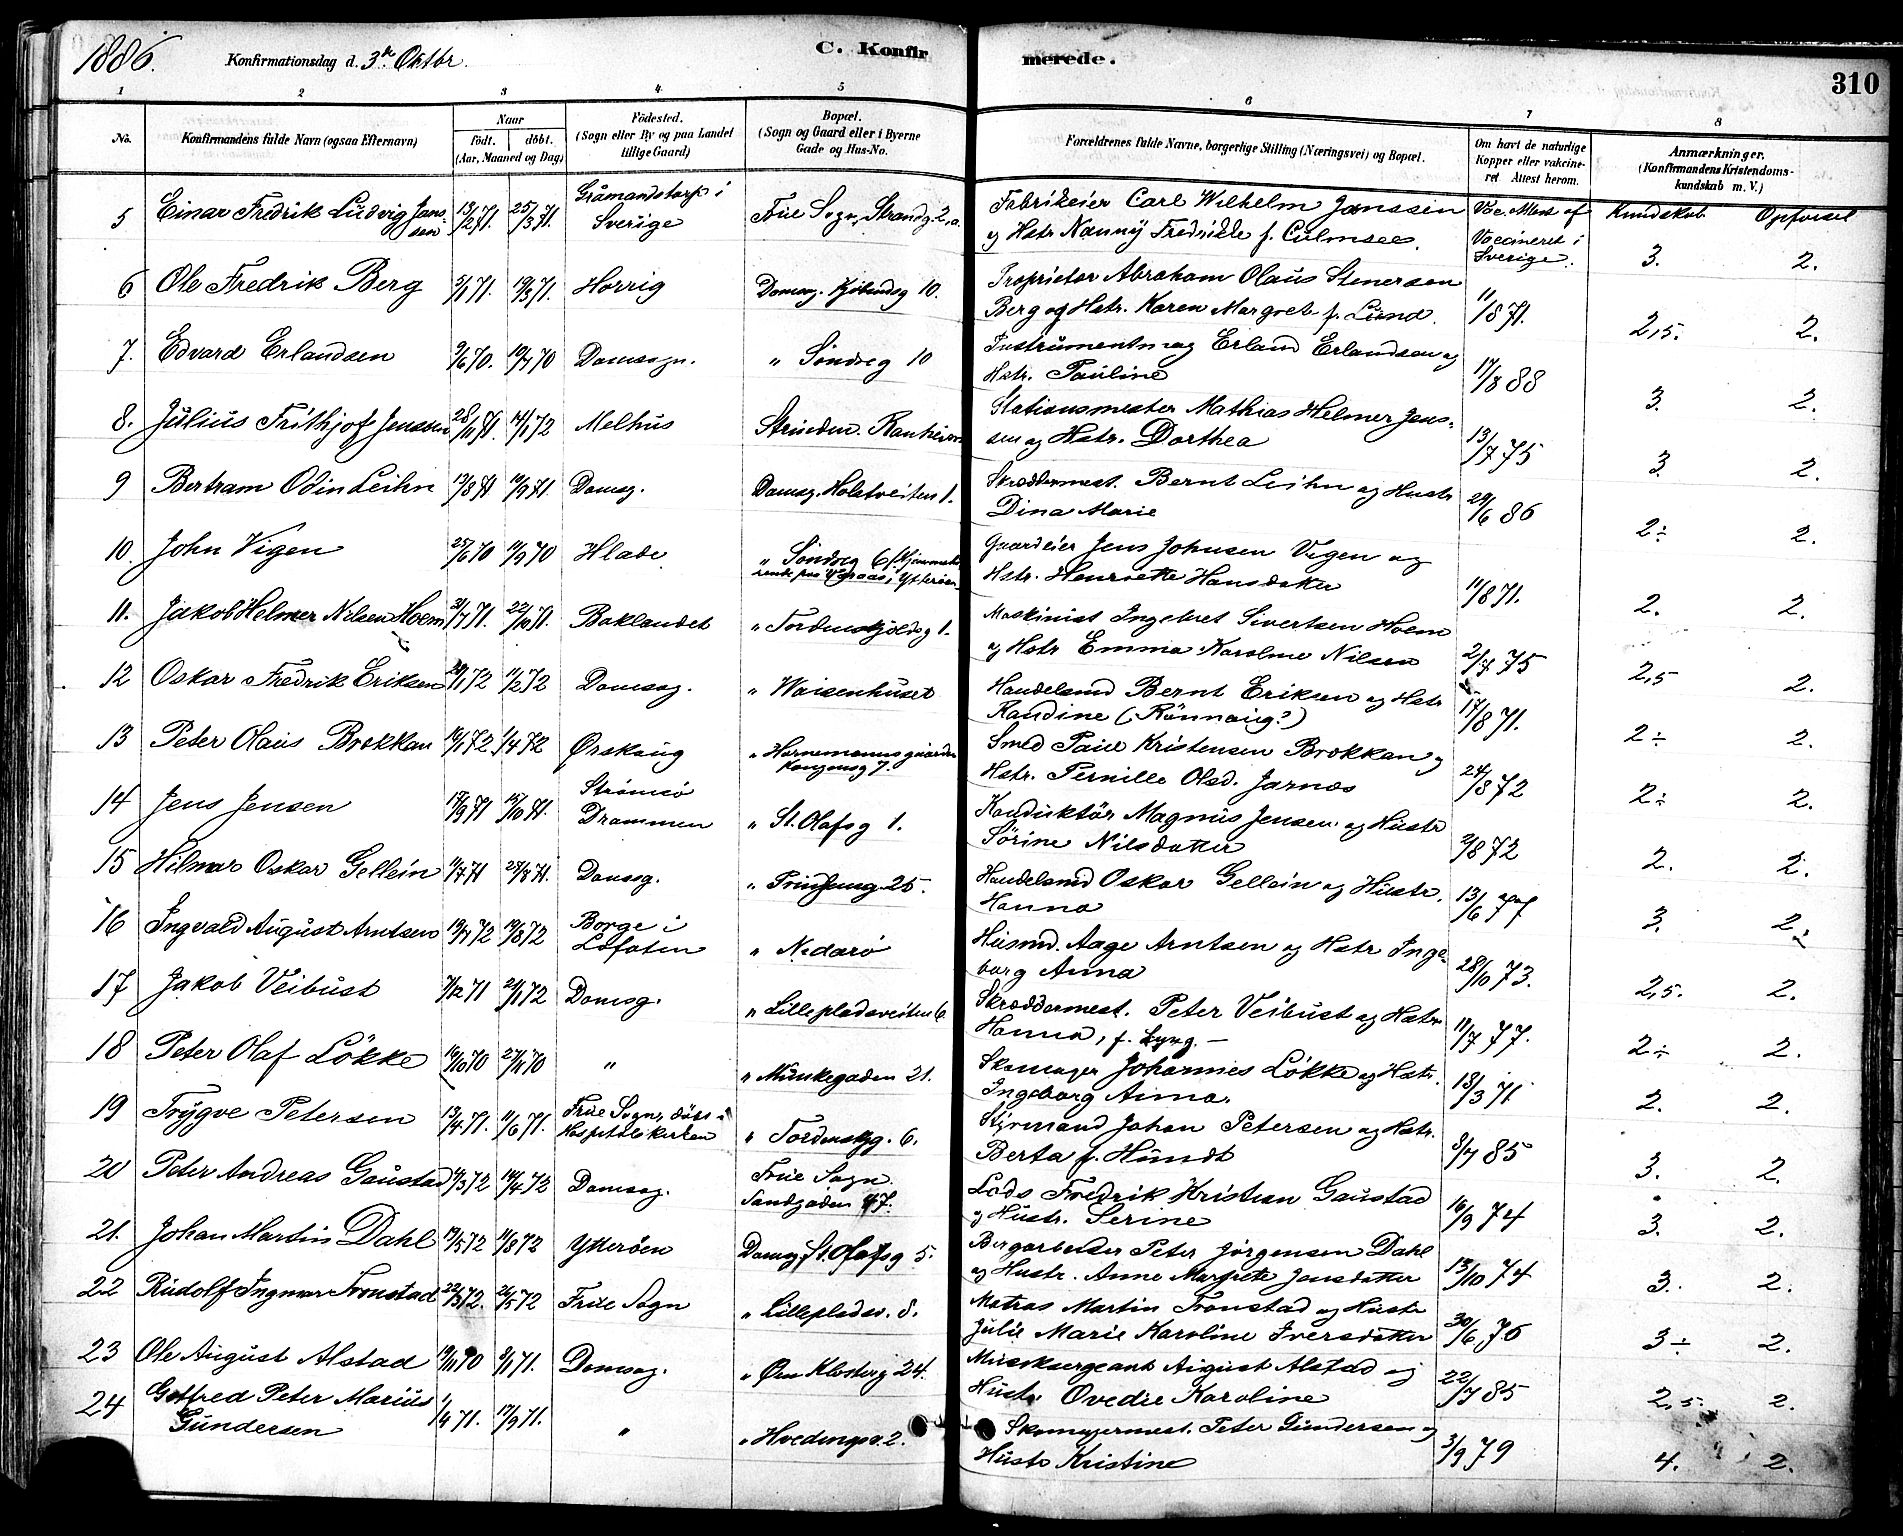 1886. Konfirmationsdag d. 3die Oktbr. C. Konfirmerede. 310
1 2 3 4 5 6 7 8
No. Konfirmandens fulde Navn (ogsaa Efternavn) Naar Født. døbt. (Aar, Maaned og Dag) Fødested. (Sogn eller By og paa Landet tillige Gaard) Bopæl. (Sogn og Gaard eller i Byerne Gade og Hus-No. Forældrenes fulde Navne, borgerlige Stilling (Næringsvei) og Bopæl. Om havt de naturlige Kopper eller vakcineret Attest herom. Anmærkninger. (Konfirmandens Kristendomskundskab m. V.)
Kundskab Opførsel
5 Einar Fredrik Ludvig Janssen 13/2 71. 25/3 71. Gåmandstorp i Sverige Frue Sogn, Strandg. 2, a. Fabrikeier Carl Wilhelm Janssen
og Hstr Nanny Fredrikke f. Culmsee. Vaccineret i Sverige. 3. 2.
6 Ole Fredrik Berg 5/1 71. 19/3 71. Horrig Domsg. Kjöbmdsg 10. Proprietær Abraham Olaus Stenersen
Berg og Hstr. Karen Margret f. Lund. 11/1 871. 2,5. 2.
7. Edvard Erlandsen 9/6 70. 10/7 70 Domsogn. " Söndreg 10 Instrumentmag Erland Erlandsen og
Hstr. Pauline 17/8 88 3. 2.
8. Julius Frithjof Jenssen 28/11 71. 14/1 72 Melhus Strinden. Ranheim Stationsmester Mathias Helmer Jenssen
og Hstr. Dorthea 13/7 75 3. 2.
9 Bertram Odin Leihn 13/8 71 10/9 71. Domsg. Domsg. Holstveiten 1. Skræddermest. Bernt Leihn og Hustr
Dina Marie 29/6 86 2÷ 2.
10. John Vigen 25/6 70 11/9 70 Hlade " Söndreg 6 Gaardeier Jens Johnsen Vigen og
Hstr. Henriette Hansdatter 11/8 71. 2. 2.
11. Jakob Helmer Nilsen Hoem 31/7 71. 22/10 71. Baklandet " Tordenskjoldsg 1. Maskinist Ingebret Sivertsen Hoem
og Hstr Emma Karoline Nilsen 2/7 75 2,5 2.
12 Oskar Fredrik Eriksen 20/1 72 11/2 72 Domsog. " Waisenhuset Handelsmd Bernt Eriksen og Hstr
Randine (Rönnaug?) 17/8 71. 2÷ 2.
13 Peter Olaus Brokkan 16/1 72. 1/4 72 Ørskoug " Hornemannsgaarden Kongensg 7. Smed Paul Kristensen Brokkan og
Hstr. Pernille Olsd. Jarnæs 24/8 72 2÷ 2.
14 Jens Jensen 17/9 71 15/10 71. Strömsö Drammen " St. Olafsg 1. Konduktör Magnus Jensen og Hustr
Sörine Nilsdatter 2/8 72 2. 2.
15 Hilmar Oskar Gellein 11/7 71 27/8 71. Domsg. " Prinsensg. 25. Handelsmd Oskar Gellein og Hustr.
Hanna 13/6 77 3. 2.
16 Ingvald August Arntsen 19/7 72 18/8 72 Borge i Lofoten " Nedarö Husmd. Aage Arntsen og Hstr Ingeborg
Anna 28/10 73. 2,5. 2.
17 Jakob Veibust 7/12 71 21/1 72 Domsg. " Lillepladsveiten 6 Skræddermest. Peter Veibust og Hstr
Hanna, f. Lyng. 11/7 77. 2÷ 2.
18 Peter Olaf Lökke 10/10 70 27/11 70 " " Munkegaden 21. Skomager Johannes Lökke og Hstr.
Ingeborg Anna. 18/3 71 2. 2.
19 Trygve Petersen 13/4 71. 11/6 71. Frue Sogn, döbt i Hospitalskirken " Tordenskjg. 6. Styrmand Johan Petersen og Hstr.
Berta f. Hundt 8/7 85 3. 2.
20 Peter Andreas Gaustad 11/3 72 14/4 72 Domsog. Frue Sogn. Sandgaden 47. Lods Fredrik Kristian Gaustad
og Hustr. Serine 16/9 74 3. 2.
21. Johan Martin Dahl 19/5 72 11/8 72 Ytteröen Domsg. St. Olafsg 5. Bergarbeider Peter Jörgensen Dahl
og Hustr. Anne Margrete Jensdatter 13/10 74 3. 2.
22 Rudolf Ingmar Tronstad 22/3 72. 26/5 72 Frue Sogn " Lillepladsv. 8. Matros Martin Tronstad og Hustr
Julie Marie Karoline Iversdatter 30/6 76 3÷ 2.
23 Ole August Alstad 19/11 70 8/1 71. Domsog. " Øvre Klosterg 24. Musiksergeant August Alstad og
Hustr. Ovedie Karoline 22/7 85 2,5. 2.
24 Gotfred Peter Marius Gundersen 1/9 71. 17/9 71. " " Hvedingsv. 2. Skomagermest. Peter Gundersen og
Hustr Kristine 3/9 79 4. 2.